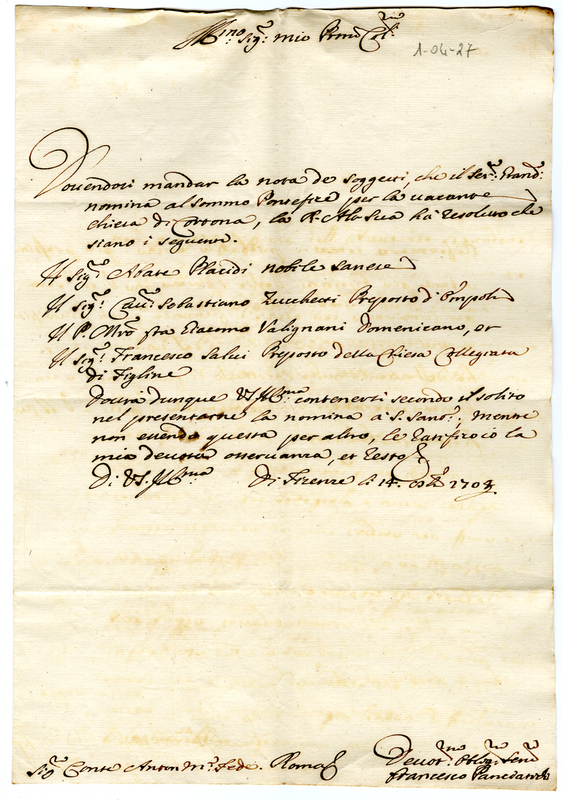 Ill.mo Sig.r mio Pron Col.mo
1-04-27
Dovendosi mandar la nota de Soggetti, che il Ser.mo Grand.
nomina al Sommo Pontefice per la vacante
chiesa di Cortona, la R. Alt.a Sua hà resoluto che
siano i seguenti.
Il Sig.r Abate Placidi nobile sanese
Il Sig.r Cav. Sebastiano Zucchetti Preposto d'Empoli
Il P. Mro fra Giacomo Valignani Domenicano, et
Il Sig.r Francesco Salvi Preposto della Chiesa Collegiata
di Figline
Dovrà dunque VS. Ill.ma contenersi secondo il solito
nel presentarne la nomina à S. Sant.; mentre
non essendo questa per altro, le ratifico la
mia devota osservanza, et resto
Di VS. Ill.ma Di Firenze li 14. 1703.
Sig.r Conte Anton M.a Fede. Roma
Devot.mo Oblig. Serv.
Francesco Panciatichi